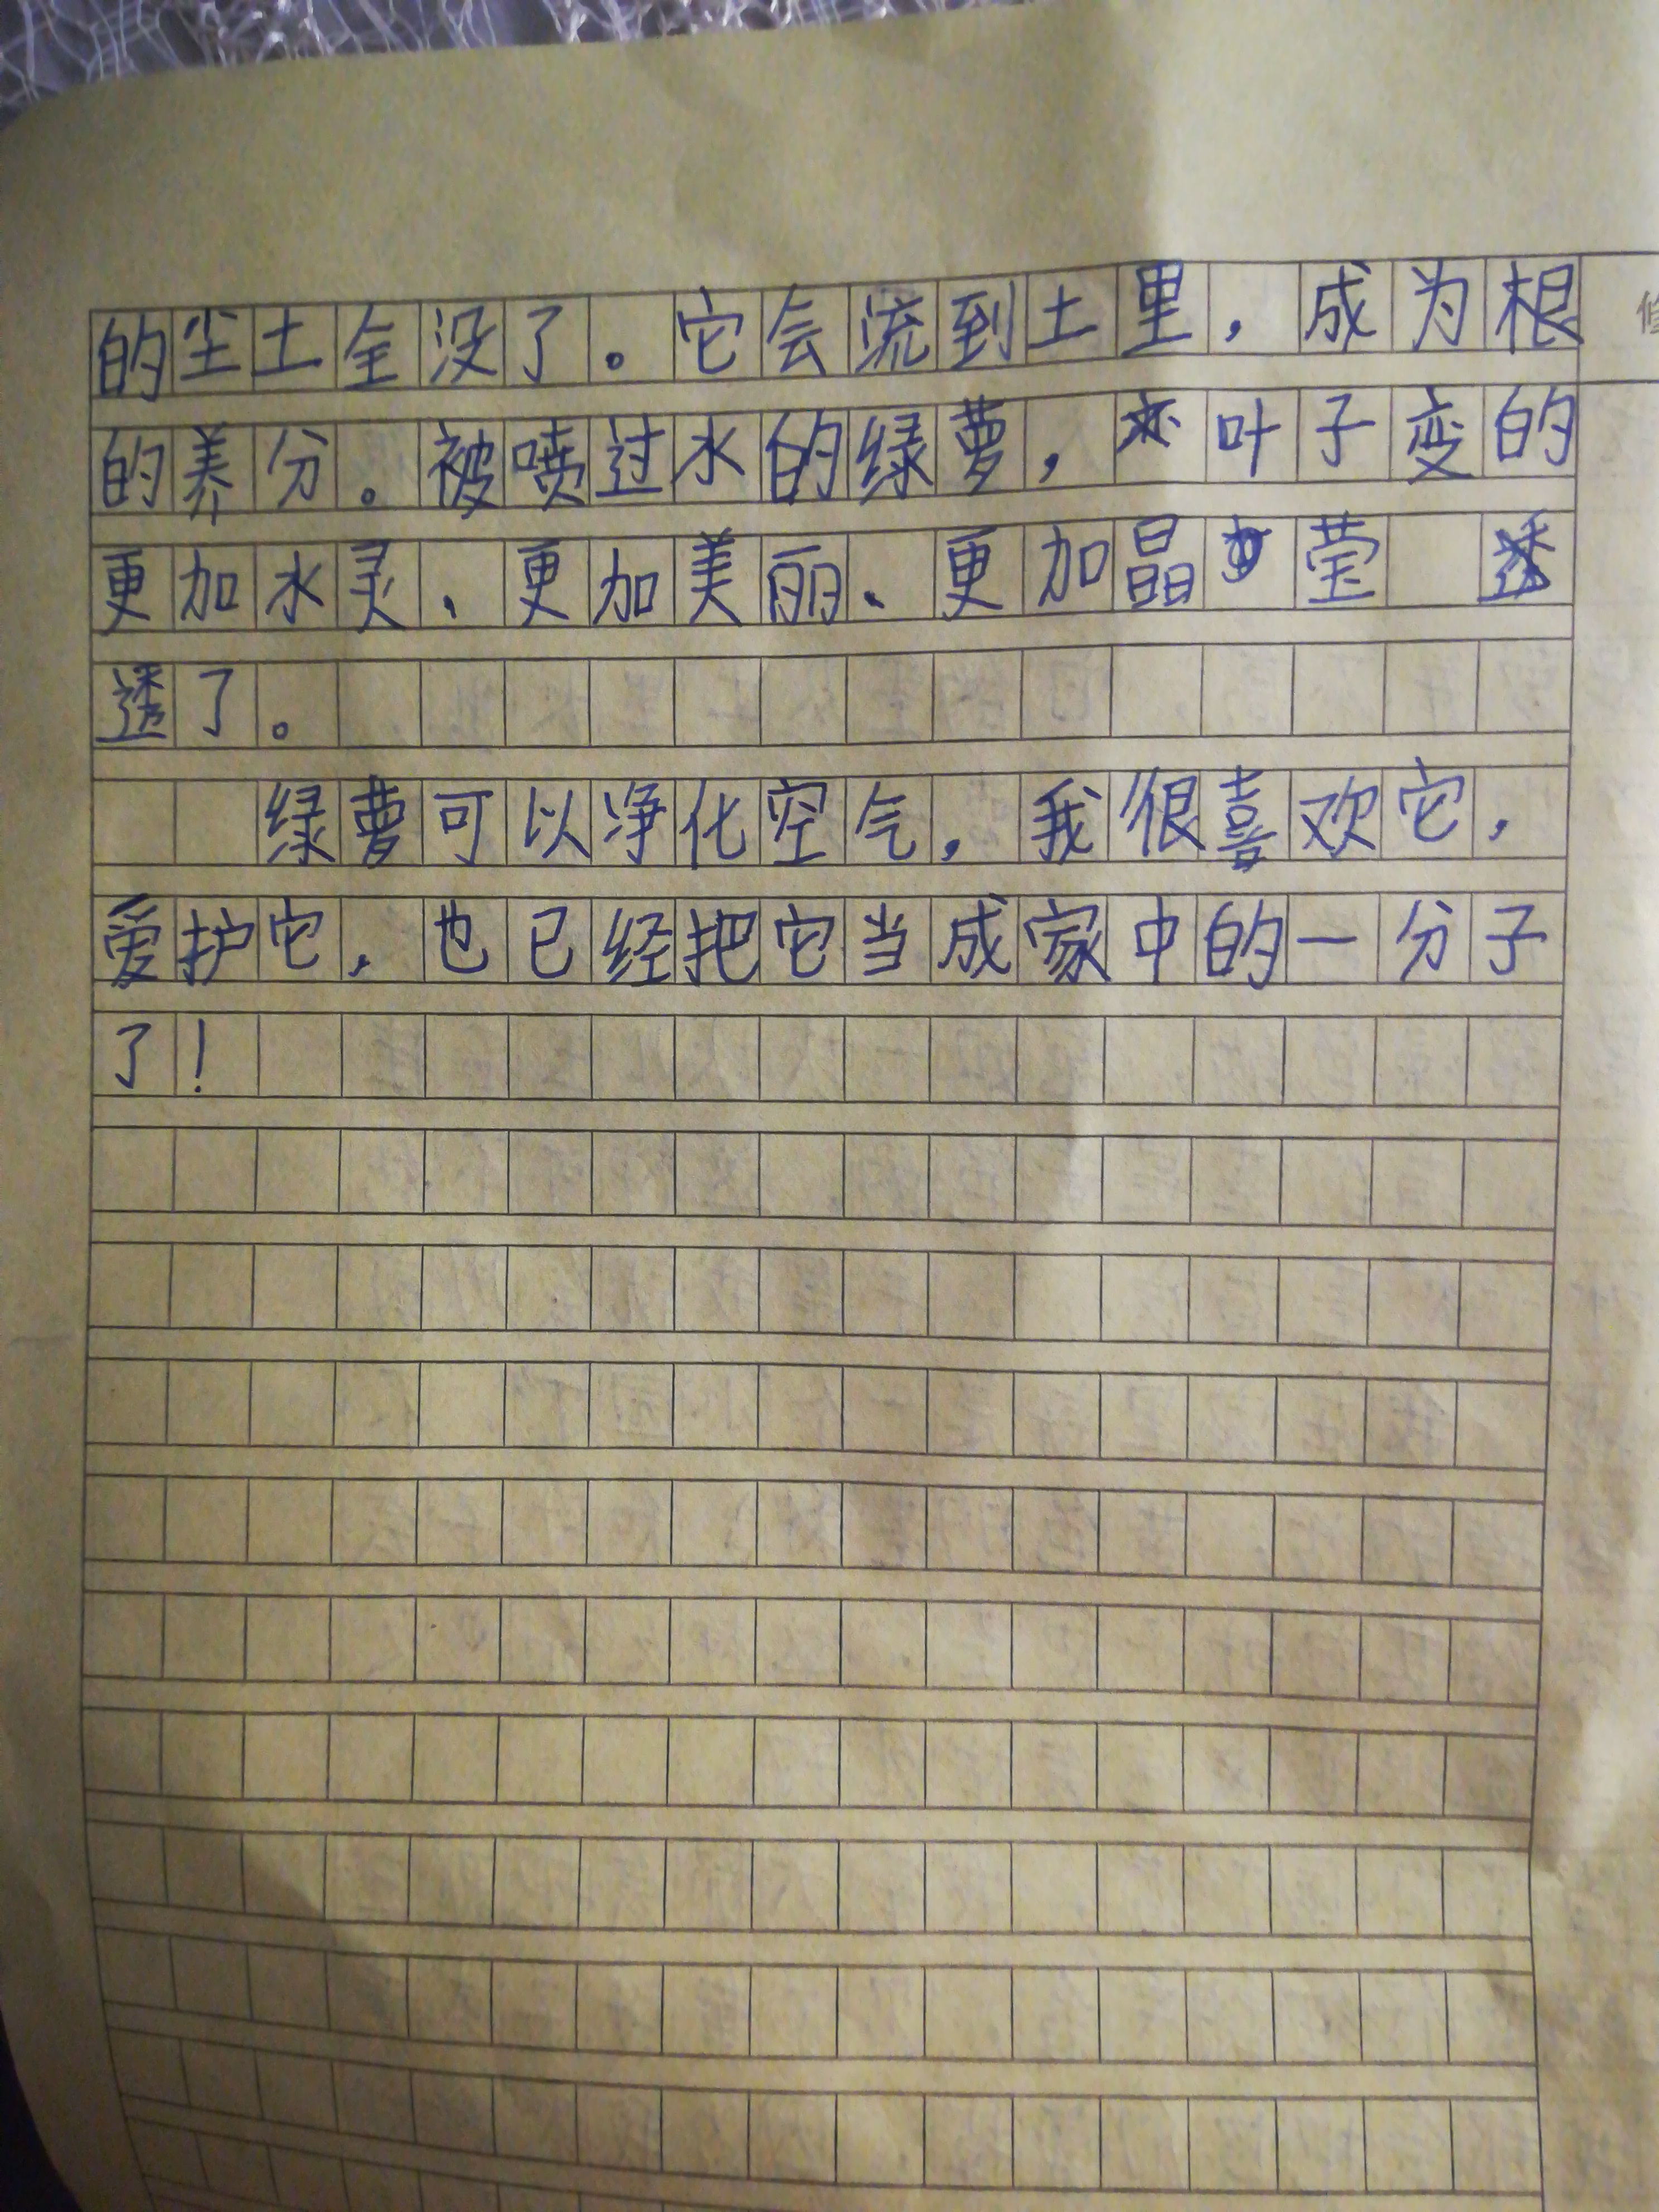 的尘土全没了。它会流到土里，成为根
的养分。被喷过水的绿萝，叶子变的
更加水灵、更加美丽、更加晶莹
透了。
绿萝可以净化空气，我很喜欢它，
爱护它，也已经把它当成家中的一分子
了！